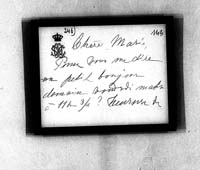 248
164
Chère Marie,
Pour vous me dire
un petit bonjour
demain mardi matin
à 11h 3/4 ? Heureuse de